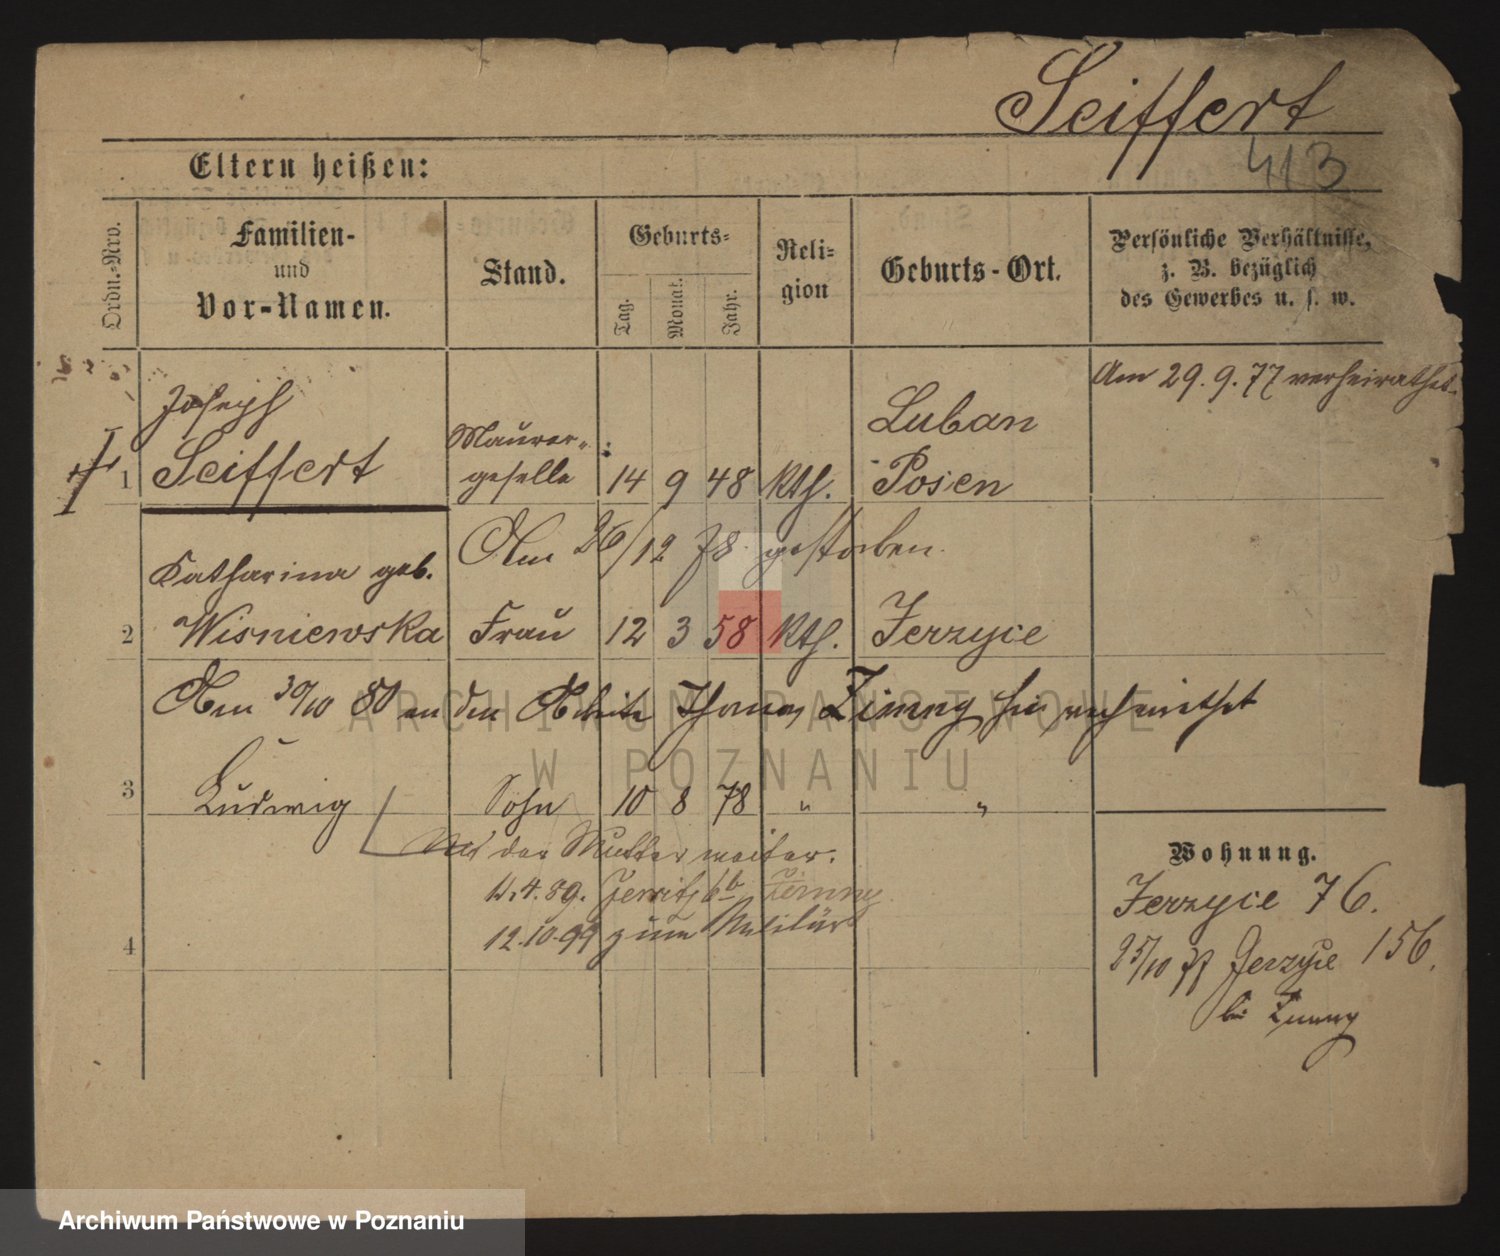 Seiffert
413
Eltern heißen:
Ordn.-Nro.
Familien-
und
Vor-Namen.
Stand.
Geburts-
Tag.
Monat.
Jahr.
Reli-
gion
Geburts-Ort.
Persönliche Verhältnisse,
z. B. bezüglich
des Gewerbes u. s. w.
Am 29. 9. 77 verheirathet.
Joseph
1 Seiffert
Maurer-
geselle
14 9 48 kth.
Luban
Posen
Am 26/12 78 gestorben.
Katharina geb.
2 Wisniewska Frau 12 3 58 kth. Jerzyce
Am 30/10 80 an den Arbeiter Thomas Zimny hier verheirathet
3 Ludwig Sohn 10 8 78 " "
Mit der Mutter weiter.
12.4.89. Jersitz 6b Zimny
12.10.99 zum Militär
4
Wohnung.
Jerzyce 76.
25/10 77 Jerzyce 156.
bei Zimny
ARCHIWUM PAŃSTWOWE
W POZNANIU
Archiwum Państwowe w Poznaniu